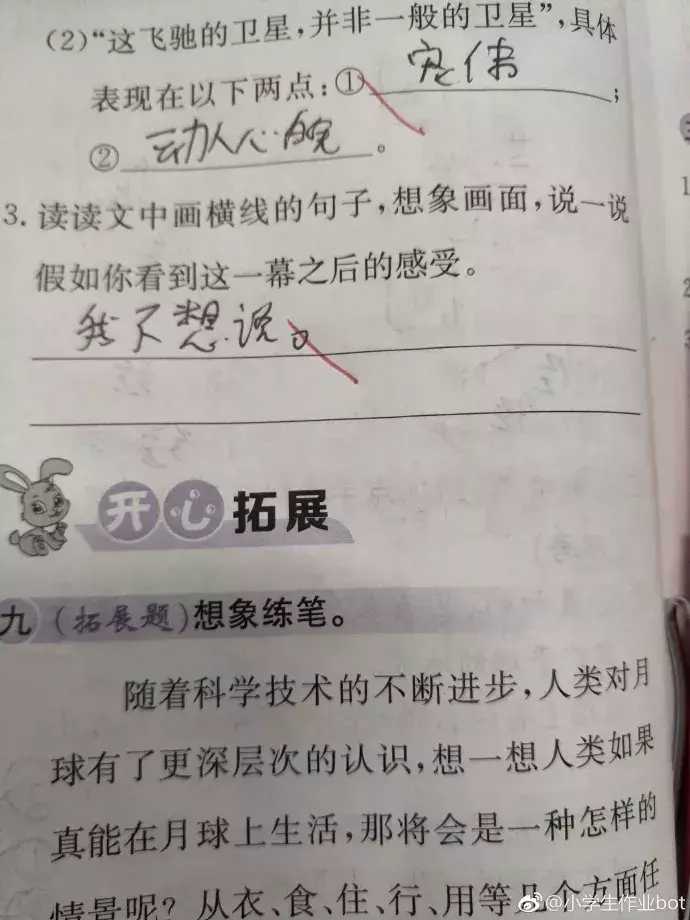 (2)“这飞驰的卫星,并非一般的卫星”,具体
表现在以下两点:① 伟;
② 动人心的。
3. 读读文中画横线的句子,想象画面,说一说
假如你看到这一幕之后的感受。
我不想说。
开心拓展
九 (拓展题)想象练笔。
随着科学技术的不断进步,人类对月
球有了更深层次的认识,想一想人类如果
真能在月球上生活,那将会是一种怎样的
情景呢?从衣、食、住、行、用等几个方面任
@小学生作业bot